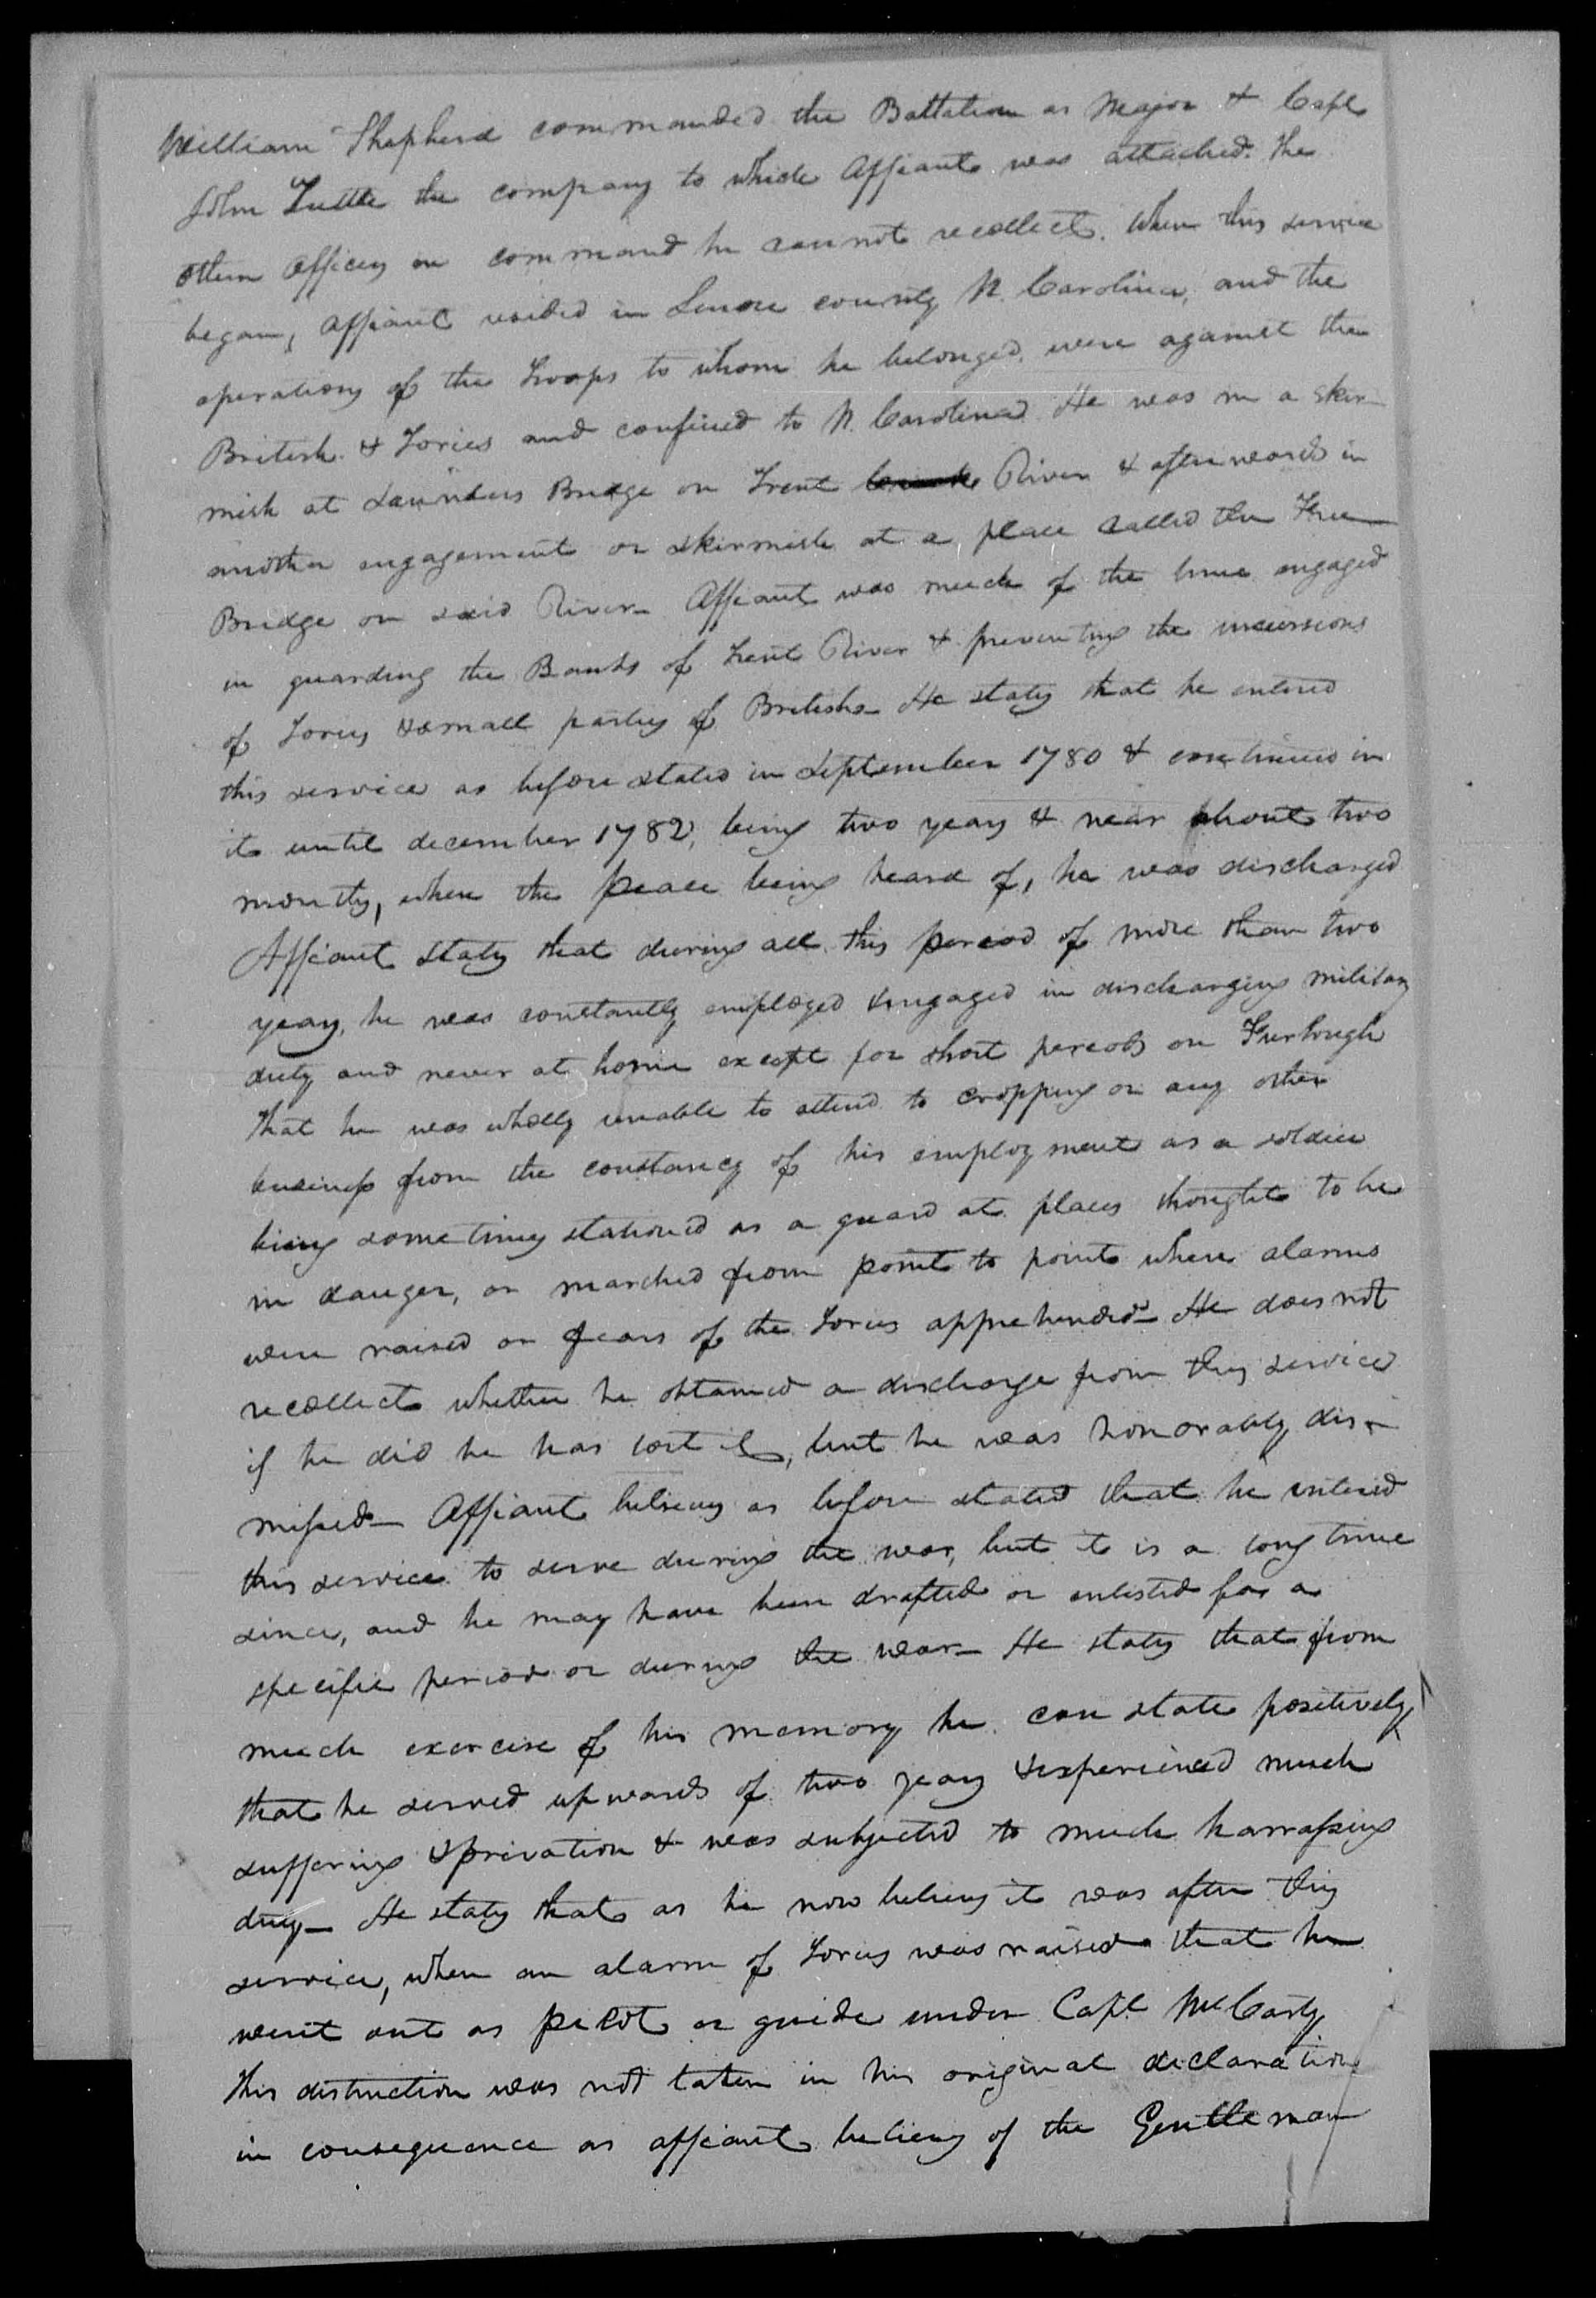 William Shepherd commanded the Battalion as Major & Capt
John Tuttle the company to which Affiant was attached. The
other officers on command he cannot recollect. When this service
began, affiant resided in Lenore county N. Carolina, and the
operations of the troops to whom he belonged were against the
British & Tories and confined to N. Carolina He was in a skir-
mish at Saunders Bridge on Trent River & afterwards in
another engagement or skirmish at a place called the Free
Bridge on said River- Affiant was much of the time engaged
in guarding the Banks of Trent River & preventing the incursions
of Tories & small parties of British- He states that he entered
this service as before stated in September 1780 & continued in
it until december 1782, being two years & near about two
months, when the peace being heard of, he was discharged
Affiant states that during all this period of more than two
years, he was constantly employed & engaged in discharging military
duty and never at home except for short periods on Furlough
That he was wholly unable to attend to cropping or any other
business from the constancy of his employment as a soldier
being sometimes stationed as a guard at places thought to be
in danger, or marched from point to point where alarms
were raised or fears of the Tories apprehended- He does not
recollect whether he obtained a discharge from this service
if he did he has lost it, but he was honorably dis-
missed- Affiant believes as before stated that he entered
this service to serve during the war, but it is a long time
since, and he may have been drafted or enlisted for a
specific period or during the war- He states that from
much exercise of his memory he can state positively
that he served upwards of two years & experienced much
suffering & privation & was subjected to much harrassing
duty- He states that as he now believes it was after this
service, when an alarm of Tories was raised that he
went out as pilot or guide under Capt McCarty
This distinction was not taken in his original declaration
in consequence as affiant believes of the Gentleman